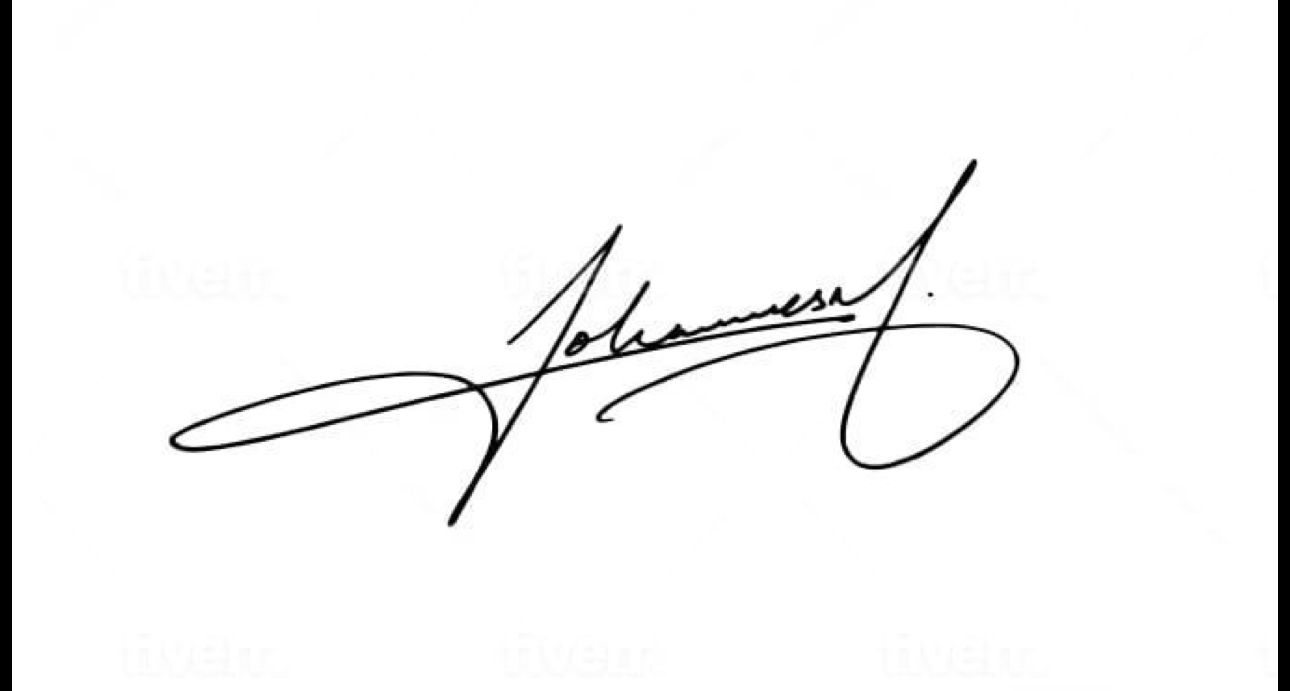 Johannes
fiverr fiverr fiverr
fiverr fiverr fiverr